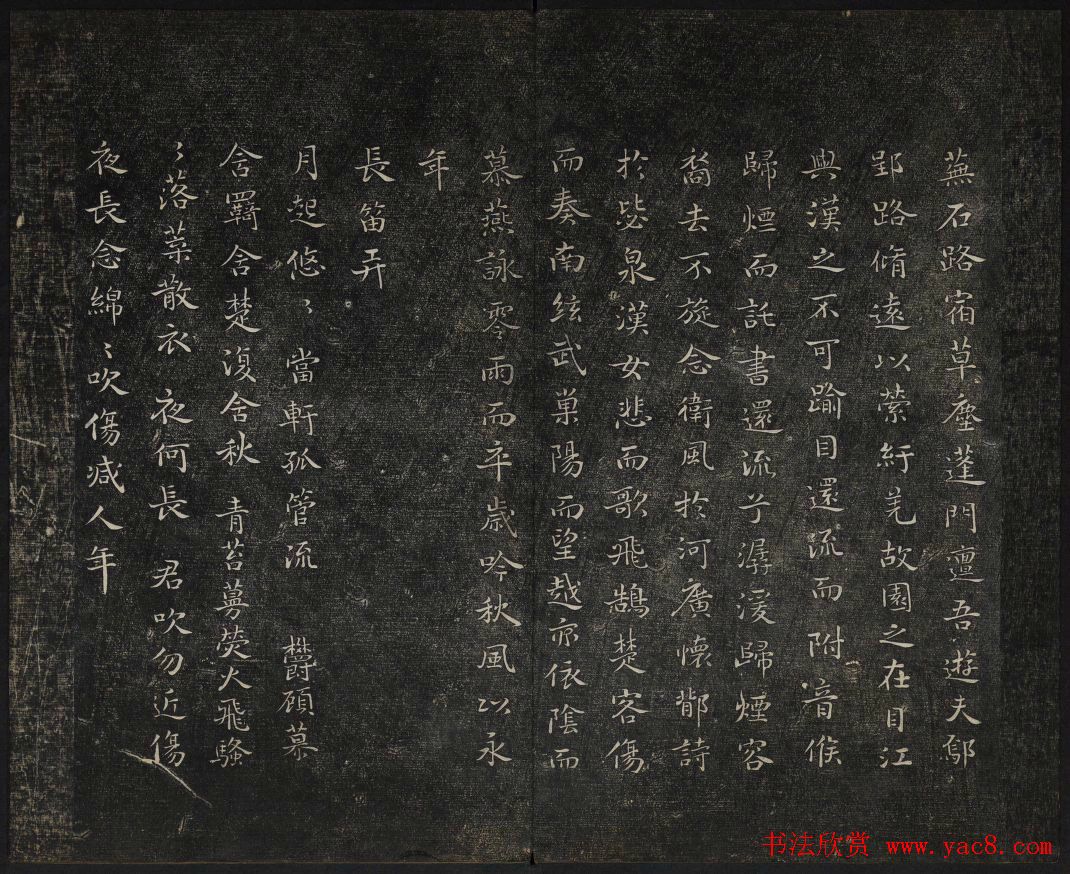 蕪石路宿草塵蓬門亶吾遊夫鄢
郢路脩遠以縈紆羌故園之在目江
與漢之不可踰目還流而附音候
歸煙而託書還流兮潺湲歸煙容
裔去不旋念衛風於河廣懷鄁詩
於毖泉漢女悲而歌飛鵠楚客傷
而奏南絃武巢陽而望越亦依陰而
慕燕詠零雨而卒歲吟秋風以永
年
長笛弄
月起悠〻當軒孤管流 欝顧慕
含羇含楚復含秋 青苔蔓熒火飛騷
〻落葉散衣 夜何長 君吹勿近傷
夜長念綿〻吹傷減人年
书法欣赏 www.yac8.com